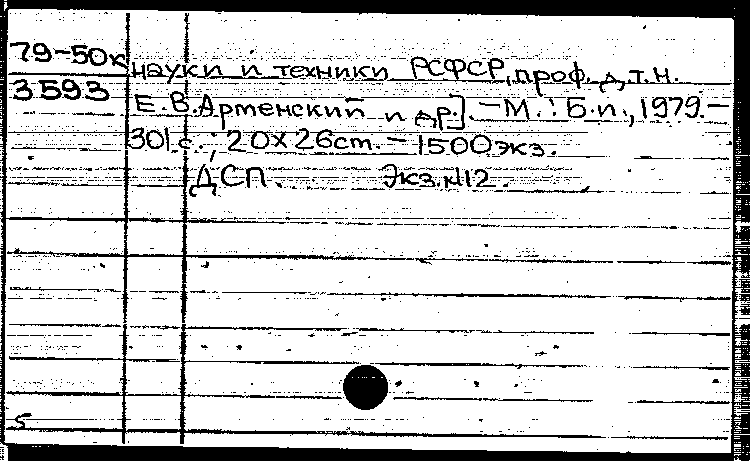 79-50к
3593
науки и техники РСФСР, проф. д.т.н.
Е.В.Арменский и др.]. - М.: Б.и., 1979. -
301 с.; 20x26cm. - 1500 экз.
ДСП. Экз.№12.
5